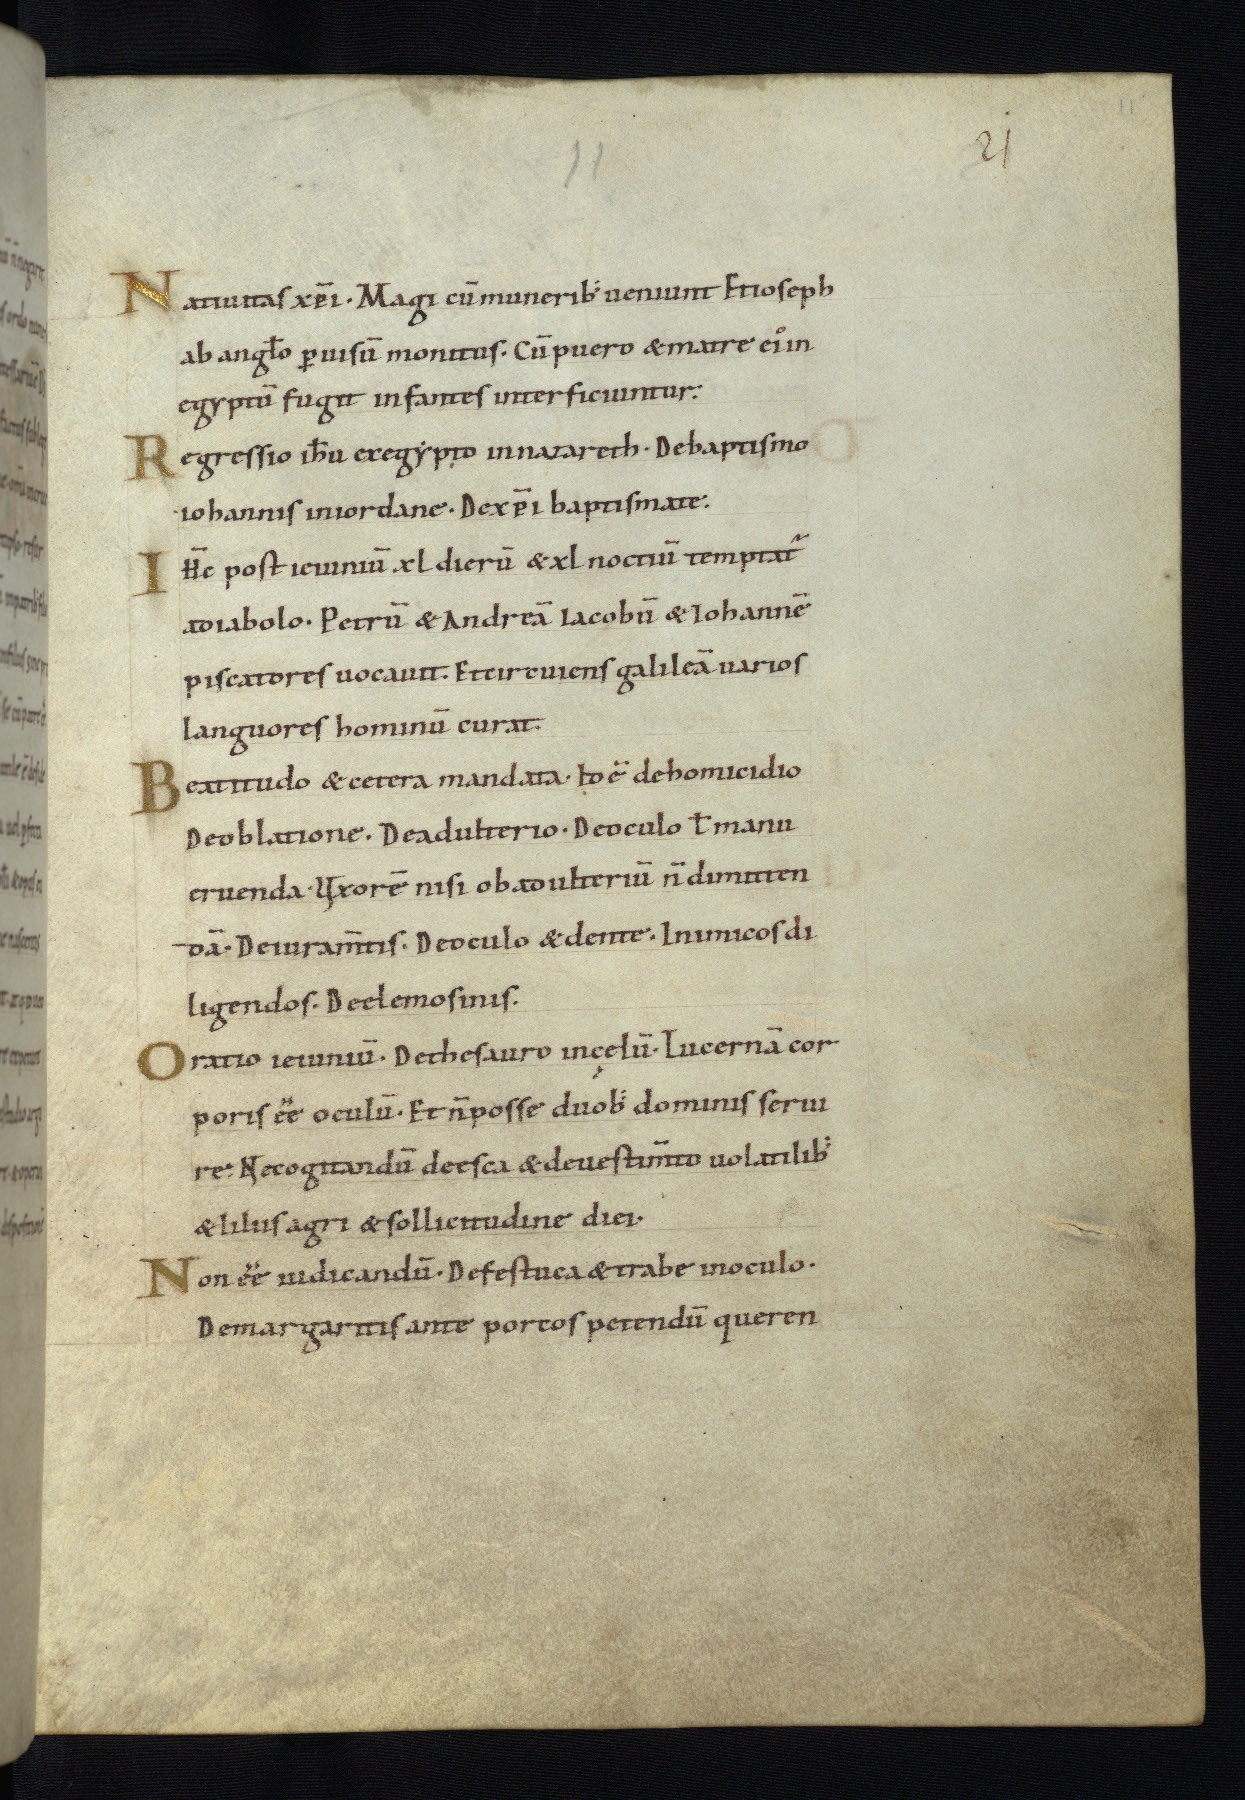 11
11
21
Natiuitas xp̅i · Magi cū munerib; ueniunt Et ioseph
ab angl̅o ꝑ uisū monitus · Cū puero & matre eiꝰ in
egyptū fugit infantes interficiuntur :
Regressio ih̅u ex egypto in nazareth · De baptismo
iohannis in iordane · De xp̅i baptismate :
IH̅C post ieiuniū xl dierū & xl noctiū temptat᷑
a diabolo · Petrū & Andreā Iacobū & Iohannē
piscatores uocauit · Et circuiens galileā uarios
languores hominū curat :
Beatitudo & cetera mandata · Id ē de homicidio
De oblatione · De adulterio · De oculo ł manu
eruenda · Uxorē nisi ob adulteriū n̄ dimitten
dā · De iuram̅tis · De oculo & dente · Inimicos di
ligendos · De elemosinis :
Oratio ieiuniū · De thesauro in cęlū · Lucernā cor
poris ee̅ oculū · Et n̄ posse duob; dominis serui
re · Nec ogitandū de esca & de uestim̅to uolatilib;
& liliis agri & sollicitudine diei ·
Non ee̅ iudicandū · De festuca & trabe in oculo ·
De margaritis ante porcos petendū queren